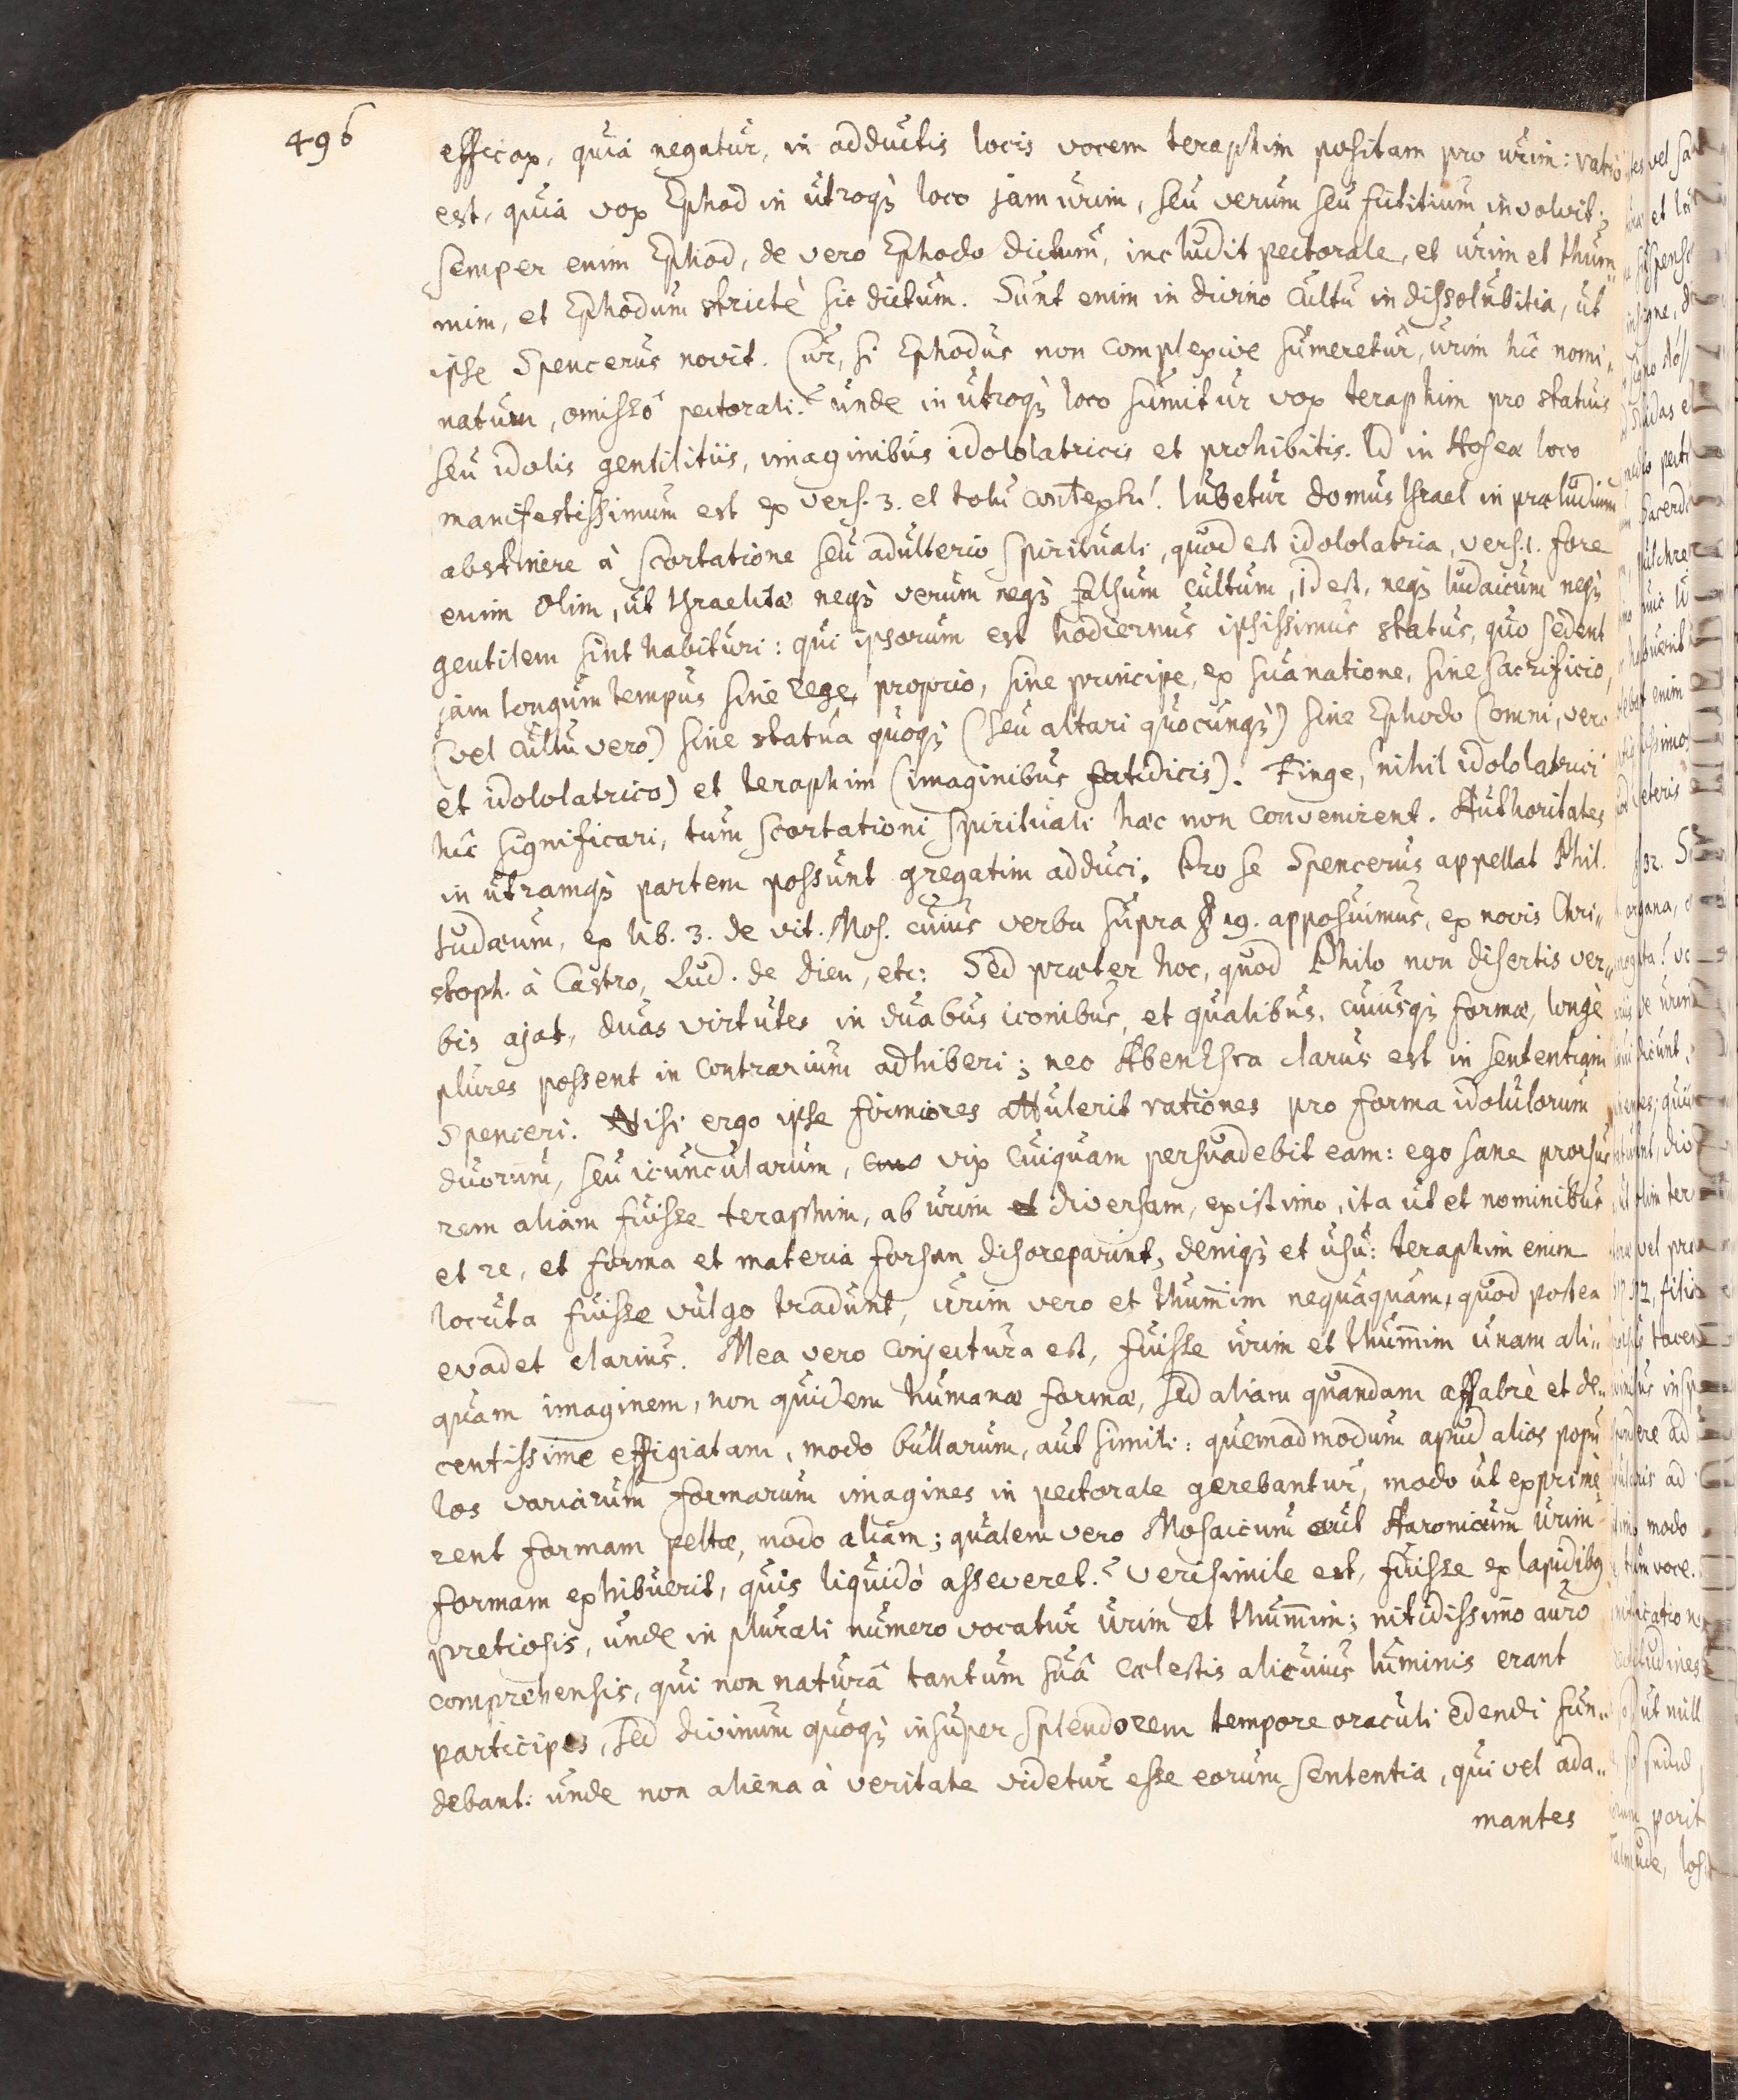 496
efficax, quia negatur, in adductis locis vocem teraphim positam pro urim: ratio
est, quia vox Ephod in utroqꝫ loco jam urim, seu verum seu fictitium involvit;
semper enim Ephod, de vero Ephodo dictum, includit pectorale, et urim et thum„
mim, et Ephodum strictè sic dictum. Sunt enim in divino cultu indissolubilia, ut
ipse Spencerus novit. Cur, si Ephodus non complexive sumeretur, urim hîc nomi„
natum, omisso pectorali? unde in utroqꝫ loco sumitur vox teraphim pro statuis
seu idolis gentilitiis, imaginibus idololatricis et prohibitis. Id in Hoseæ loco
manifestissimum est ex vers. 3. et totu contextu! Iubetur domus Israel in præludium
abstinere à scortatione seu adulterio spirituali, quod est idololatria, vers. 1. fore
enim olim, ut Israelitæ neqꝫ verum neqꝫ falsum cultum, id est, neqꝫ Iudaicum neqꝫ
gentilem sint habituri: qui ipsorum est hodiernus ipsissimus status, quo sedent
jam longum tempus sine rege proprio, sine principe, ex sua natione, sine sacrificio,
(vel cultu vero) sine statua quoqꝫ (seu altari quocunqꝫ) sine Ephodo (omni, vero
et idololatrico) et teraphim (imaginibus fatidicis). Finge, nihil idololatrici
hîc significari, tum scortationi spirituali hæc non convenirent. Authoritates
in utramqꝫ partem possunt gregatim adduci. Pro se Spencerus appellat Phil.
Iudæum, ex lib. 3. de vit. Mos. cuius verba supra § 19. apposuimus, ex novis Chri„
stoph. à Castro, Lud. de Dieu, etc: Sed præter hoc, quod Philo non disertis ver„
bis ajat, duas virtutes in duabus iconibus, et qualibus, cuiusqꝫ formæ, longè
plures possent in contrarium adhiberi; nec AbenEsra clarus est in sententiam
Spenceri. Nisi ergo ipse firmiores attulerit rationes pro forma idolulorum
duorum, seu icuncularum, vix cuiquam persuadebit eam: ego sane prorsus
rem aliam fuisse teraphim, ab urim et diversam, existimo, ita ut et nominibus
et re, et forma et materia forsan discreparint, deniqꝫ et usu: teraphim enim
locuta fuisse vulgo tradunt, urim vero et thum̄im nequaquam, quod postea
evadet clarius. Mea vero conjectura est, fuisse urim et thum̄im unam ali„
quam imaginem, non quidem humanæ formæ, sed aliam quandam affabrè et de„
centissime effigiatam, modo bullarum, aut simili: quemadmodum apud alios popu
los variarum formarum imagines in pectorale gerebantur, modo ut exprime
rent formam peltæ, modo aliam; qualem vero Mosaicum aut Aaronicum urim
formam exhibuerit, quis liquidò asseveret? Verisimile est, fuisse ex lapidibꝰ
pretiosis, unde in plurali numero vocatur urim et thum̄im; nitidissimo auro
comprehensis, qui non naturâ tantum suâ cælestis alicuius luminis erant
participes, sed divinum quoqꝫ insuper splendorem tempore oraculi edendi fun„
debant: unde non aliena à veritate videtur esse eorum sententia, qui vel ada„
mantes